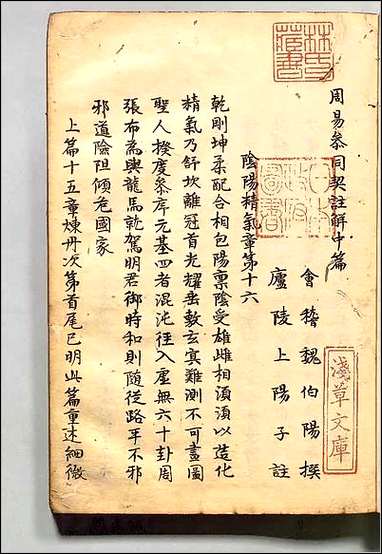 周易叅同契註解中篇
會稽魏伯陽撰
廬陵上陽子註
陰陽精氣章第十六
乾剛坤柔配合相包陽禀陰受雄雌相須須以造化
精氣乃舒坎離冠首光耀垂敷玄冥難測不可畫圖
聖人揆度叅序元基四者混沌徑入虛無六十卦周
張布為輿龍馬就駕明君御時和則隨從路平不邪
邪道險阻傾危國家
上篇十五章煉丹次第首尾已明此篇重述細微
林氏藏書
淺草文庫